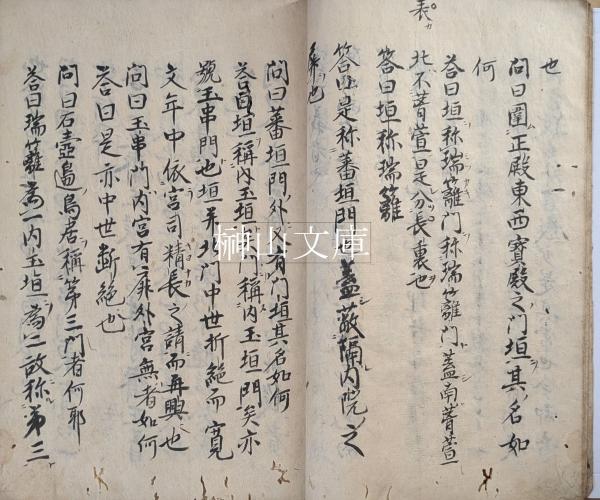 也
問曰圍正殿東西寳殿之門垣其名如
何
答曰垣称瑞籬門称瑞籬門蓋南葺萱
北不葺萱是分表裏也
答曰垣称瑞籬
答曰是称蕃垣門蓋蔽隔内院之
義也
問曰蕃垣門外有門垣其名如何
答曰垣稱内玉垣門稱内玉垣門矣亦
號玉串門也垣并北門中世折絶而寛
文年中依宮司精長之請而再興也
問曰玉串門内宮有扉外宮無者如何
答曰是亦中世断絶也
問曰石壺邉鳥居稱第三門者何耶
答曰瑞籬為一内玉垣為二故称第三
榊山文庫